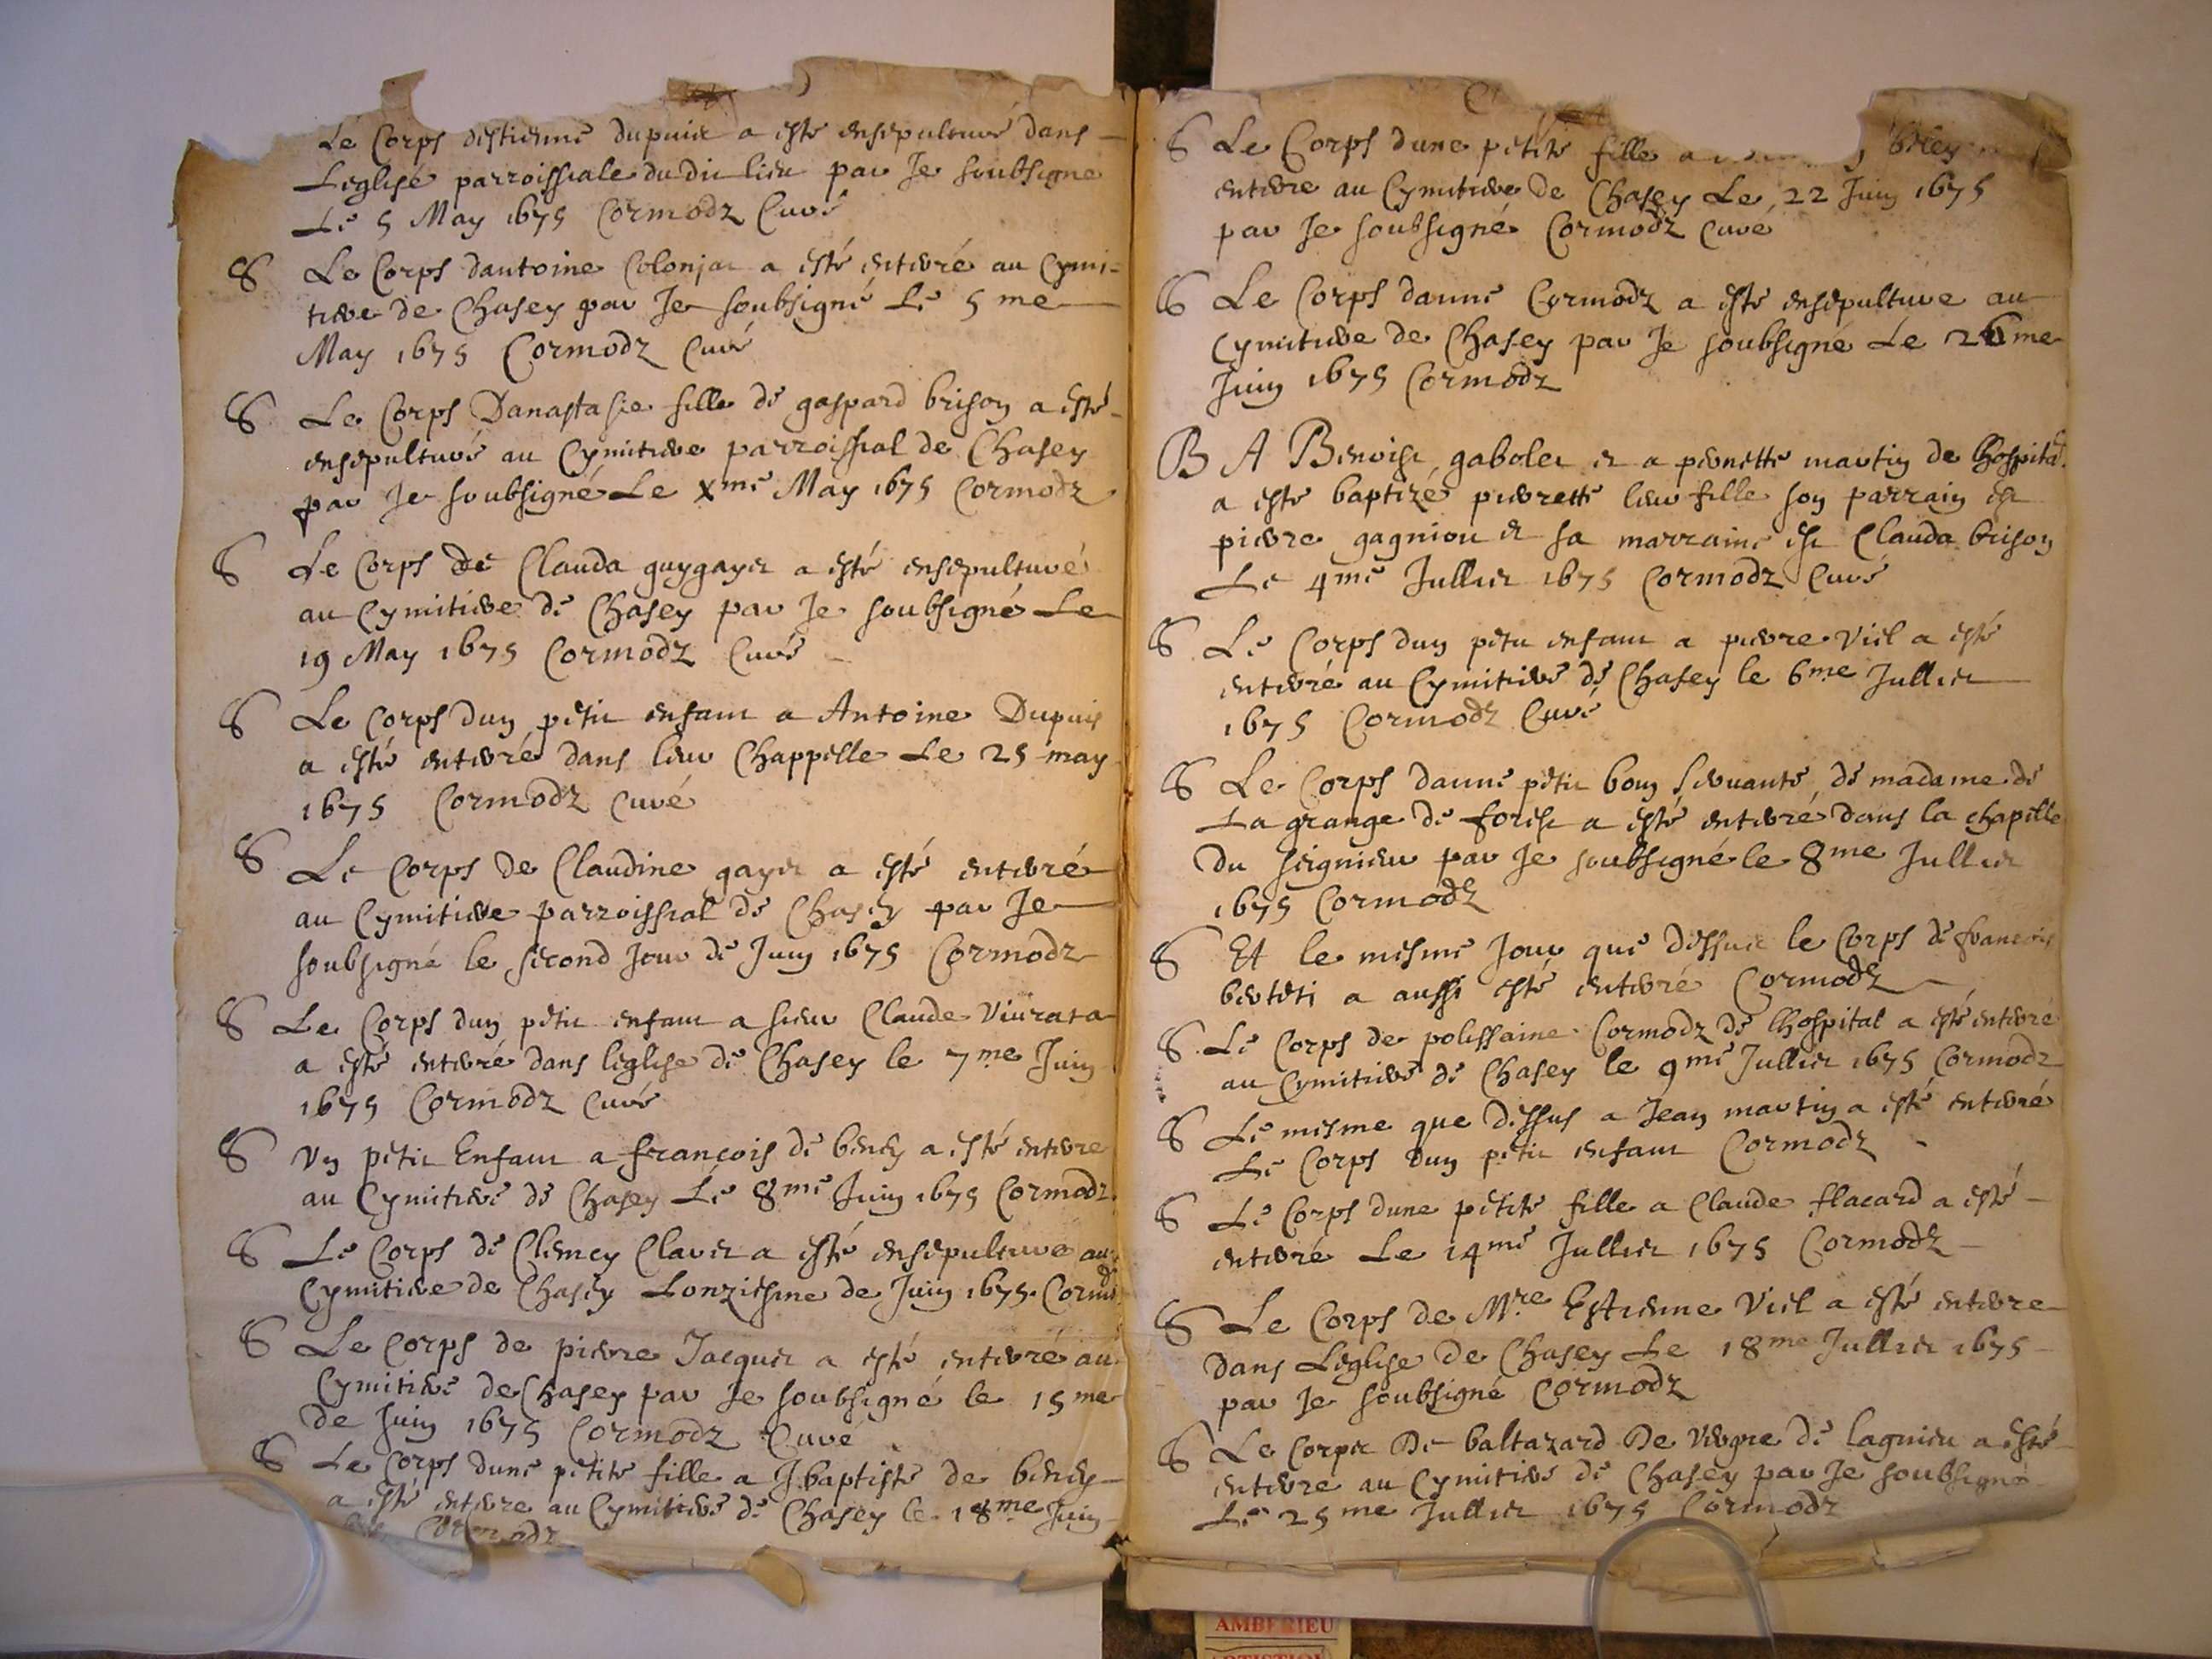 Le Corps destienne dupuit a esté ensepulturé dans
Leglise parroissiale du dit lieu par Je soubsigne
Le 5 May 1675 Cormodz Curé
S Le Corps dantoine Colonjat a esté enterré au Cymi-
tiere de Chasey par Je soubsigné Le 5 me
May 1675 Cormodz Curé
S Le Corps Danastasie fille de gaspard brison a esté
ensepulturé au Cymitiere parroissial de Chasey
par Je soubsigné Le xme May 1675 Cormodz
S Le Corps de Clauda guygayet a esté ensepulturé
au Cymitiere de Chasey par Je soubsigné Le
19 May 1675 Cormodz Curé
S Le Corps dun petit enfant a Antoine Dupuis
a esté enterré dans leur Chappelle Le 25 may
1675 Cormodz Curé
S Le Corps de Claudine gayet a esté enterré
au Cymitiere parroissial de Chasey par Je
soubsigné le second Jour de Juin 1675 Cormodz
S Le Corps dun petit enfant a sieur Claude
a esté enterré dans leglise de Chasey le 7me Juin
1675 Cormodz Curé
S Un petit Enfant a francois de beney a esté enterre
au Cymitiere de Chasey Le 8me Juin 1675 Cormodz
S Le Corps de Clemey Clavet a esté ensepulture au
Cymitiere de Chasey Lonziesme de Juin 1675. Cormodz
S Le Corps de pierre Jacquet a esté enterré au
Cymitiere de Chasey par Je soubsigné le 15 me
de Juin 1675 Cormodz Curé
S Le Corps dune petite fille a J. baptiste de beney
a esté enterre au Cymitiere de Chasey le 18me Juin
Cormodz
S Le Corps dune petite fille a
enterre au Cymitiere de Chasey Le 22 Juin 1675
par Je soubsigné Cormodz Curé
S Le Corps danne Cormodz a esté ensepulture au
Cymitiere de Chasey par Je soubsigné Le 26me
Juin 1675 Cormodz
B A Benoist gabolet et a pernette martin de lhospital
a esté baptizé pierrette leur fille son parrain est
pierre gagniou et sa marraine est Clauda brison
Le 4me Julliet 1675 Cormodz Curé
S Le Corps dun petit enfant a pierre Viel a esté
enterré au Cymitiere de Chasey le 6me Jullet
1675 Cormodz Curé
S Le Corps danne petit bon servante de madame de
La grange de forest a esté enterré dans la chapelle
du seignieur par Je soubsigné le 8me Julliet
1675 Cormodz
S Et le mesme Jour que dessus le Corps de francois
berteti a aussi esté enterré Cormodz
S Le Corps de polissaine Cormodz de lhospital a esté enterré
au Cymitiere de Chasey le 9me Julliet 1675 Cormodz
S Le mesme que dessus a Jean martin a esté enterré
Le Corps dun petit enfant Cormodz
S Le Corps dune petite fille a Claude flacard a esté
enterré Le 14me Julliet 1675 Cormodz
S Le Corps de Mre Estienne Viel a esté enterre
dans Leglise de Chasey Le 18me Julliet 1675
par Je soubsigné Cormodz
S Le Corps De baltazard De de lagnieu a esté
enterre au Cymitiere de Chasey par Je soubsigné
Le 25me Julliet 1675 Cormodz
AMBERIEU